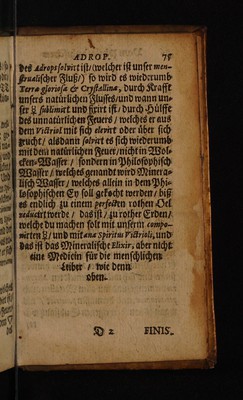 ADROP. 75
des Adrops solvirt ist / (welcher ist unser men-
strualischer Fluß/) so wird es wiederumb
Terra gloriosa & Crystallina, durch Krafft
unsers natürlichen Flusses / und wann un-
ser sublimirt und fixirt ist / durch Hülffe
des unnatürlichen Feuers / welches er aus
dem Victriol mit sich elevirt oder über sich
zeucht / alsdann solvirt es sich wiederumb
mit dem natürlichen Feuer / nicht in Wol-
cken-Wasser / sondern in Philosophisch
Wasser / welches genandt wird Minera-
lisch Wasser / welches allein in dem Phi-
losophischen Ey soll gekocht werden / biß
es endlich zu einem perfecten rothen Oel
reducirt werde / das ist / zu rother Erden /
welche du machen solt mit unserm compo-
nirten / und mit ana Spiritus Victrioli, und
das ist das Mineralische Elixir, aber nicht
eine Medicin für die menschlichen
Leiber / wie denn
oben.
D 2 FINIS.